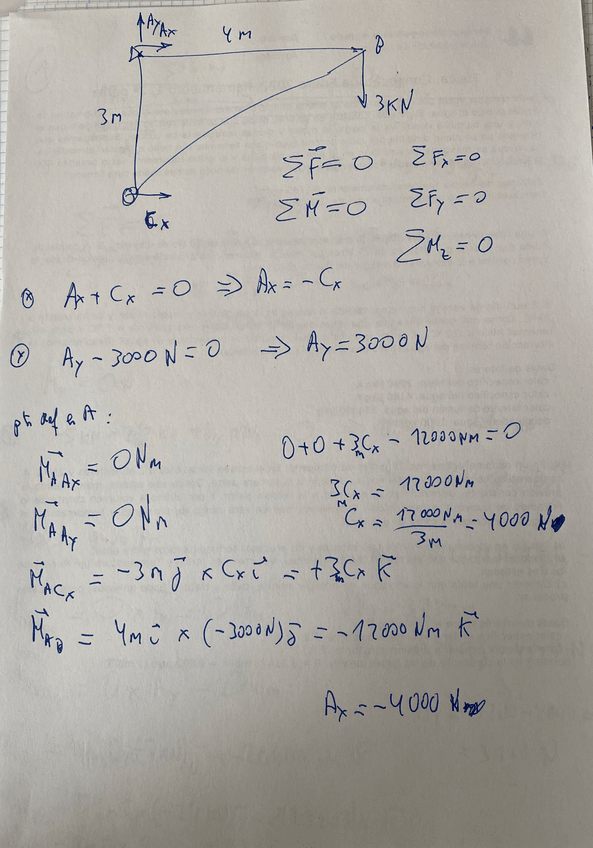 Ay Ax
4m
B
3m
3KN
Cx
ΣF⃗ = 0 ΣFx = 0
ΣM⃗ = 0 ΣFy = 0
ΣMz = 0
ⓧ Ax + Cx = 0 ⇒ Ax = - Cx
ⓨ Ay - 3000N = 0 ⇒ Ay = 3000N
A :
M⃗AAx = 0Nm
0 + 0 + 3mCx - 12000Nm = 0
M⃗AAy = 0Nm
3mCx = 12000Nm
Cx = 12000Nm / 3m = 4000 N
M⃗ACx = -3m j⃗ × Cx i⃗ = +3mCx K⃗
M⃗AB = 4m i⃗ × (-3000N) j⃗ = -12000Nm K⃗
Ax = -4000 N